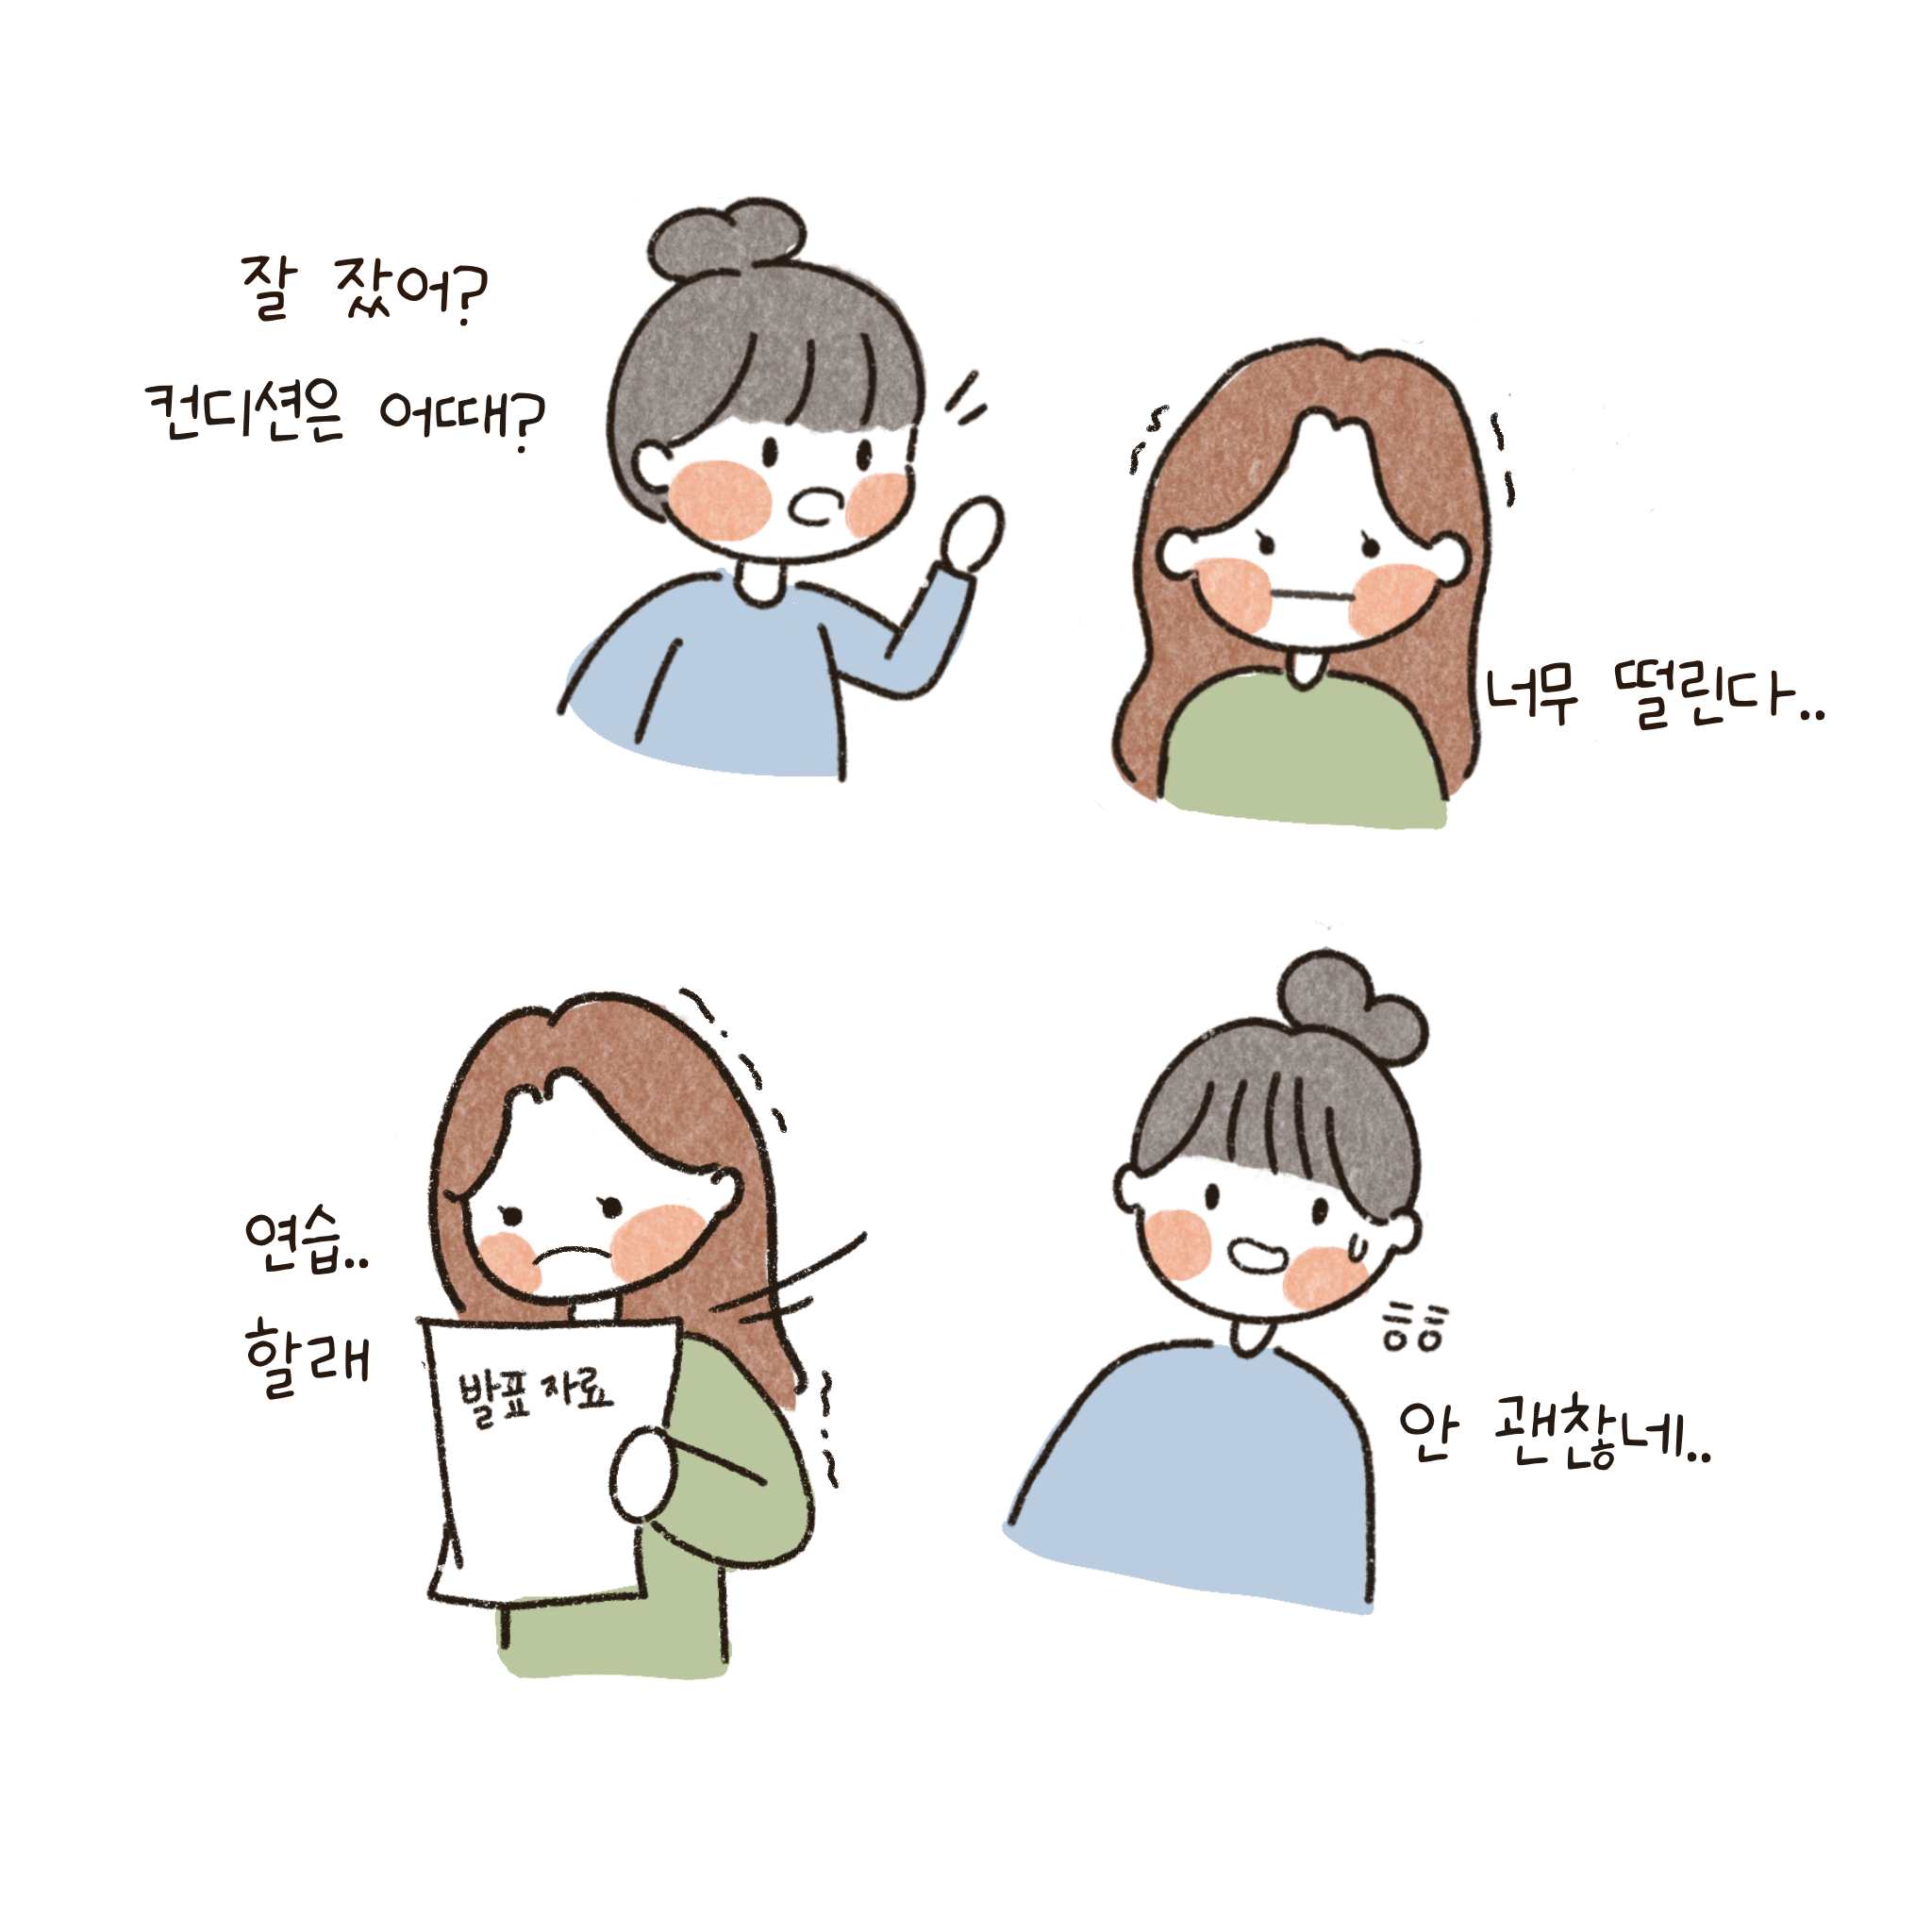 잘 잤어?
컨디션은 어때?
너무 떨린다..
연습..
할래
발표 자료
안 괜찮네..